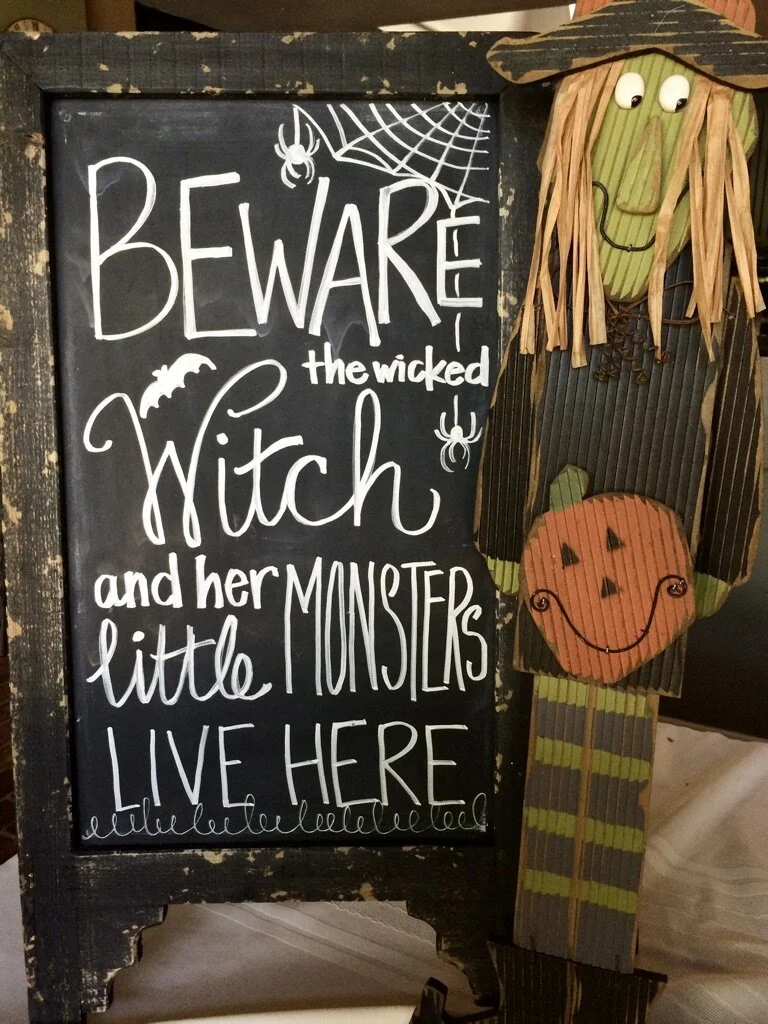 BEWARE
the wicked
Witch
and her MONSTERS
little
LIVE HERE